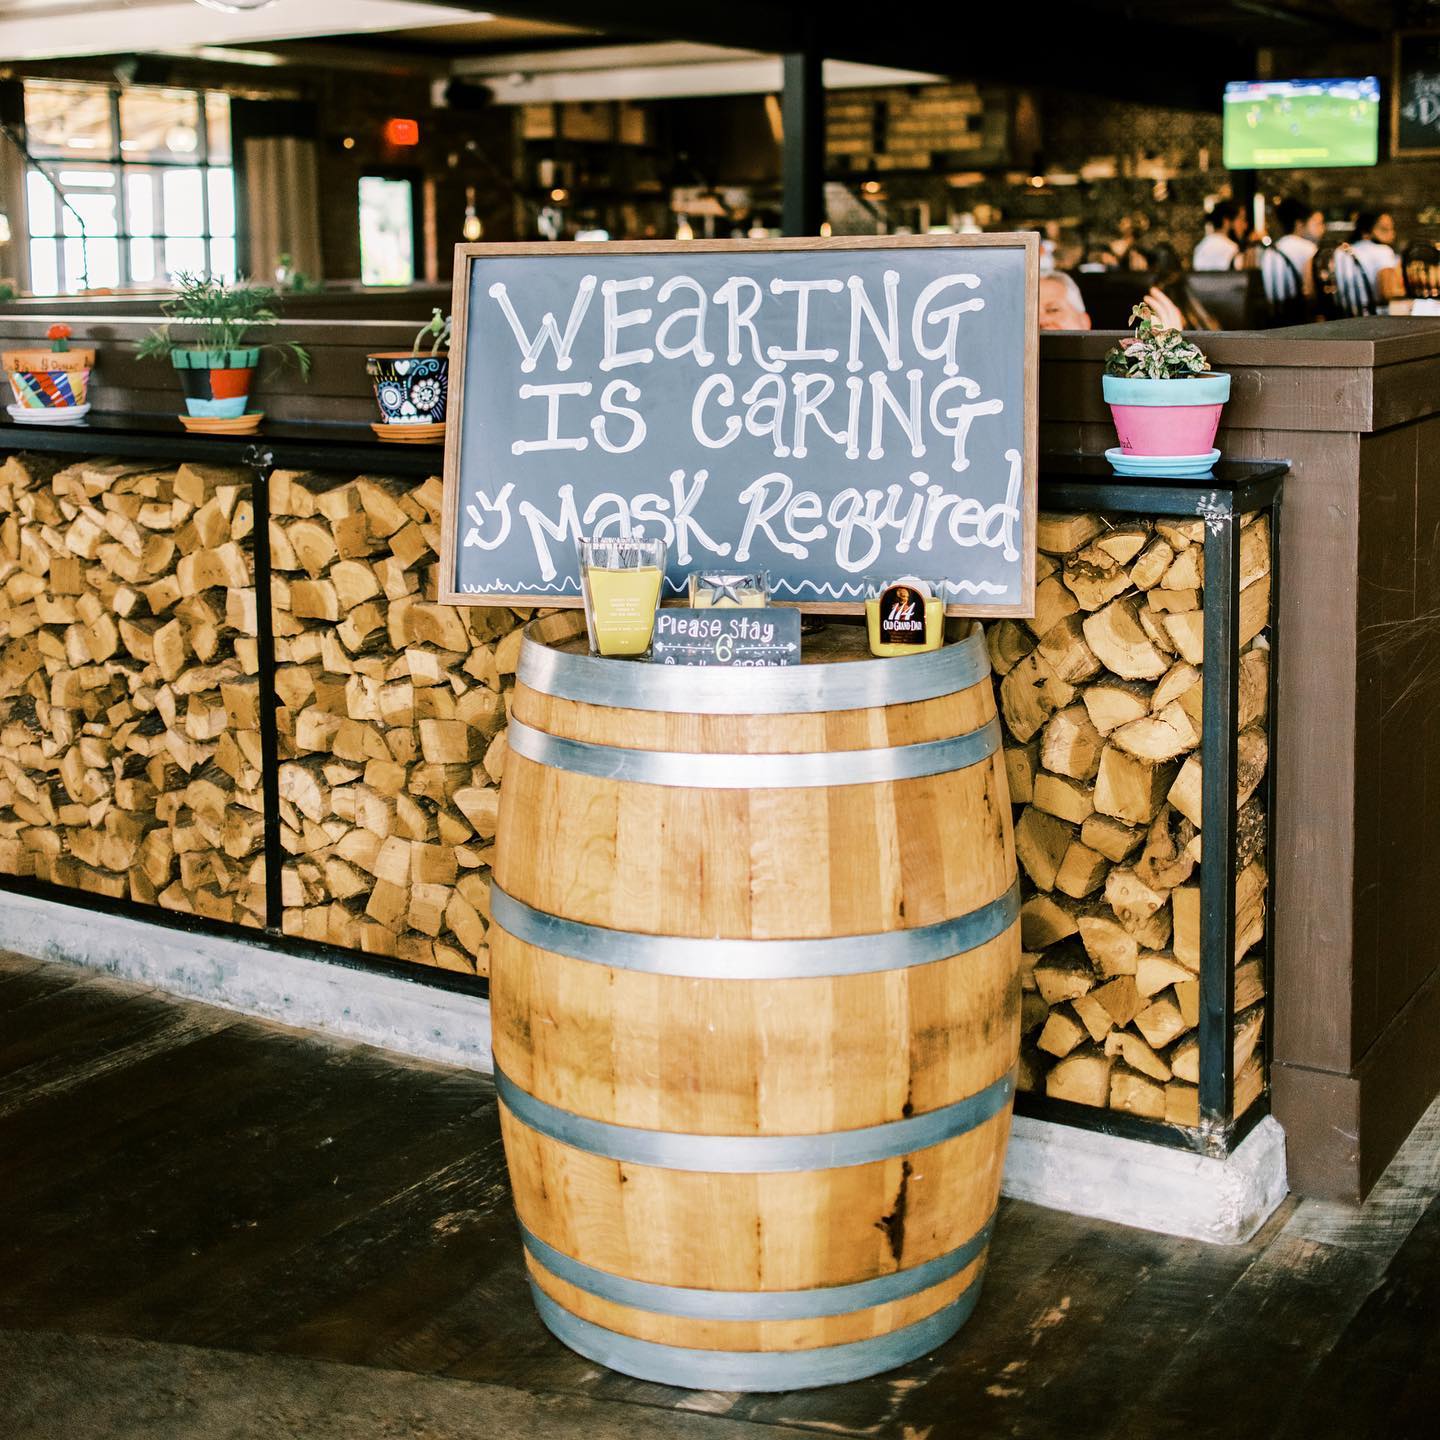 WEARING
IS CARING
Mask Required
Please stay
6
114
OLD GRAND-DAD